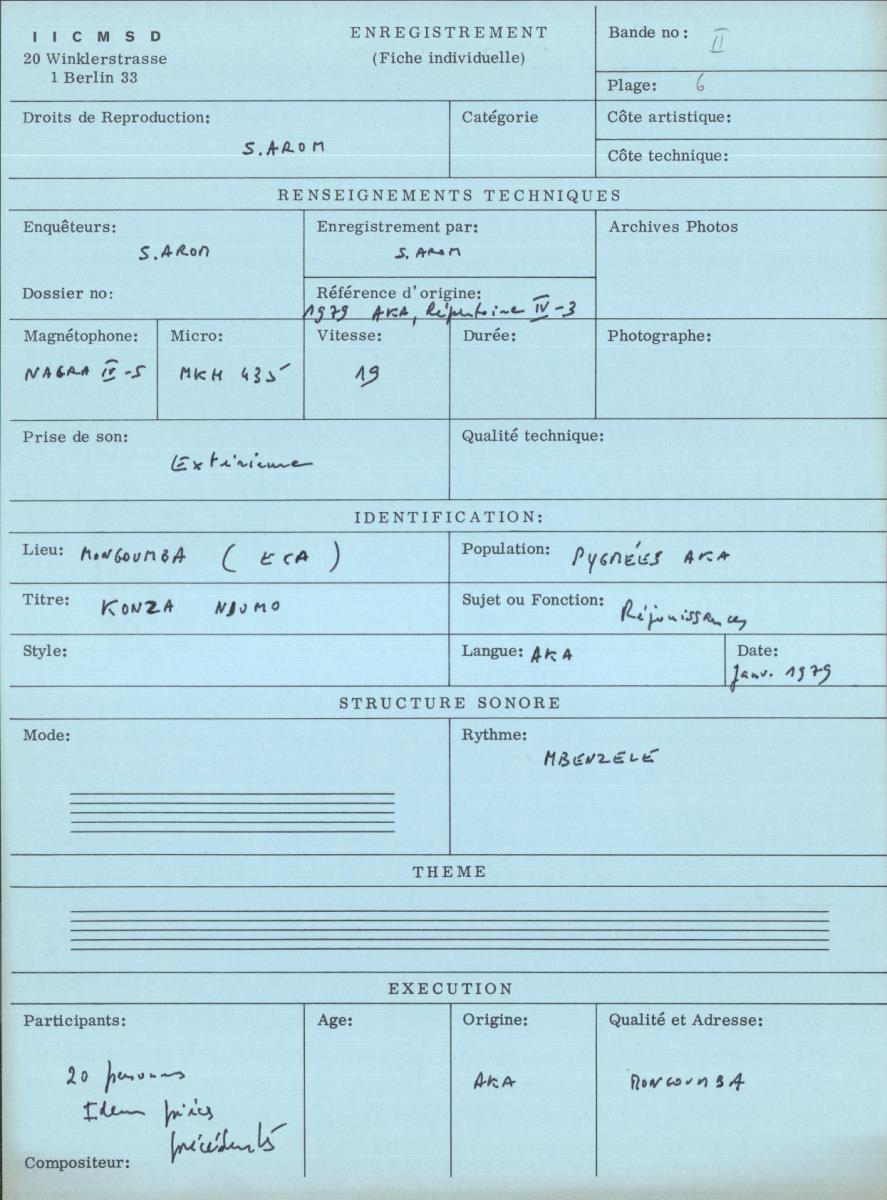 I I C M S D
20 Winklerstrasse
1 Berlin 33
ENREGISTREMENT
(Fiche individuelle)
Bande no: II
Plage: 6
Droits de Reproduction:
S. AROM
Catégorie
Côte artistique:
Côte technique:
RENSEIGNEMENTS TECHNIQUES
Enquêteurs:
S. AROM
Enregistrement par:
S. AROM
Archives Photos
Dossier no:
Référence d'origine:
1979 AKA, Répertoire IV-3
Magnétophone:
NAGRA IV-S
Micro:
MKH 435
Vitesse:
19
Durée:
Photographe:
Prise de son:
Extérieure
Qualité technique:
IDENTIFICATION:
Lieu: MONGOUMBA (ECA)
Population: PYGMÉES AKA
Titre: KONZA NDUMO
Sujet ou Fonction:
Réjouissances
Style:
Langue: AKA
Date:
Janv. 1979
STRUCTURE SONORE
Mode:
Rythme:
MBENZELE
THEME
EXECUTION
Participants:
20 personnes
Idem pièces
précédentes
Age:
Origine:
AKA
Qualité et Adresse:
MONGOUMBA
Compositeur: